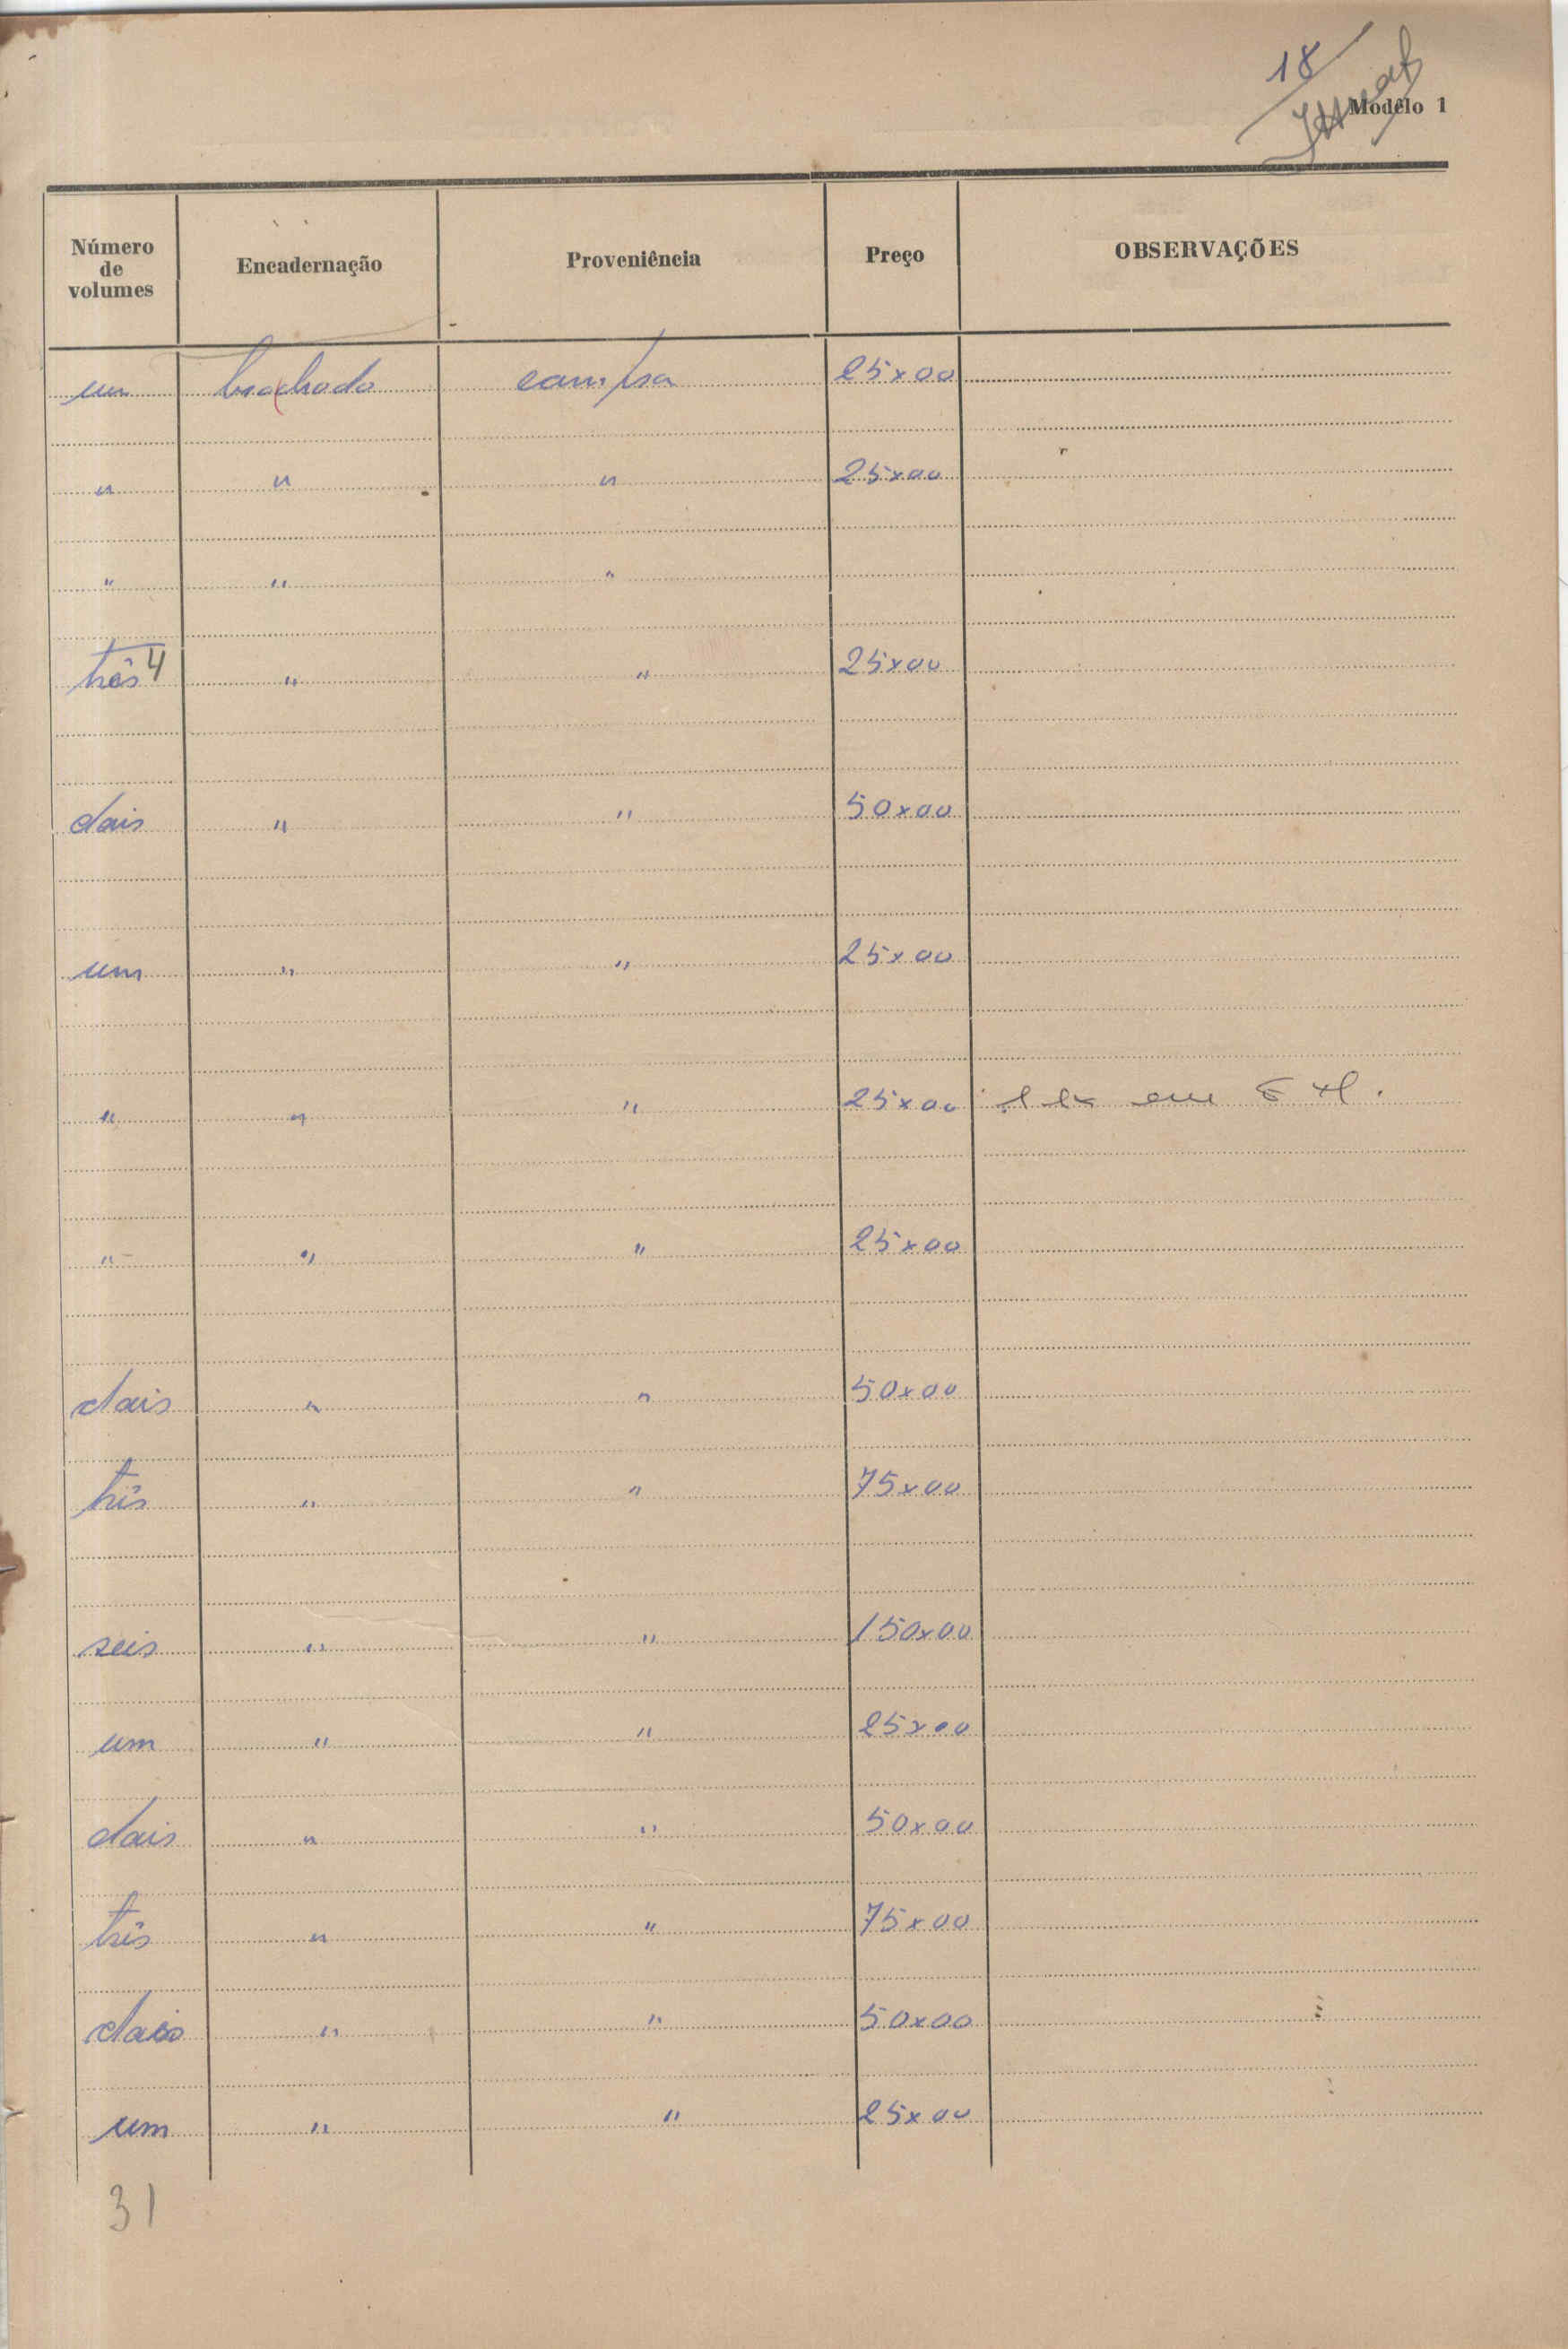 18
Modêlo 1
Número de volumes Encadernação Proveniência Preço OBSERVAÇÕES
um brochado compra 25x00
" " " 25x00
" " "
três 4 " " 25x00
dois " " 50x00
um " " 25x00
" " " 25x00 em
" " " 25x00
dois " " 50x00
três " " 75x00
seis " " 150x00
um " " 25x00
dois " " 50x00
três " " 75x00
dois " " 50x00
um " " 25x00
31